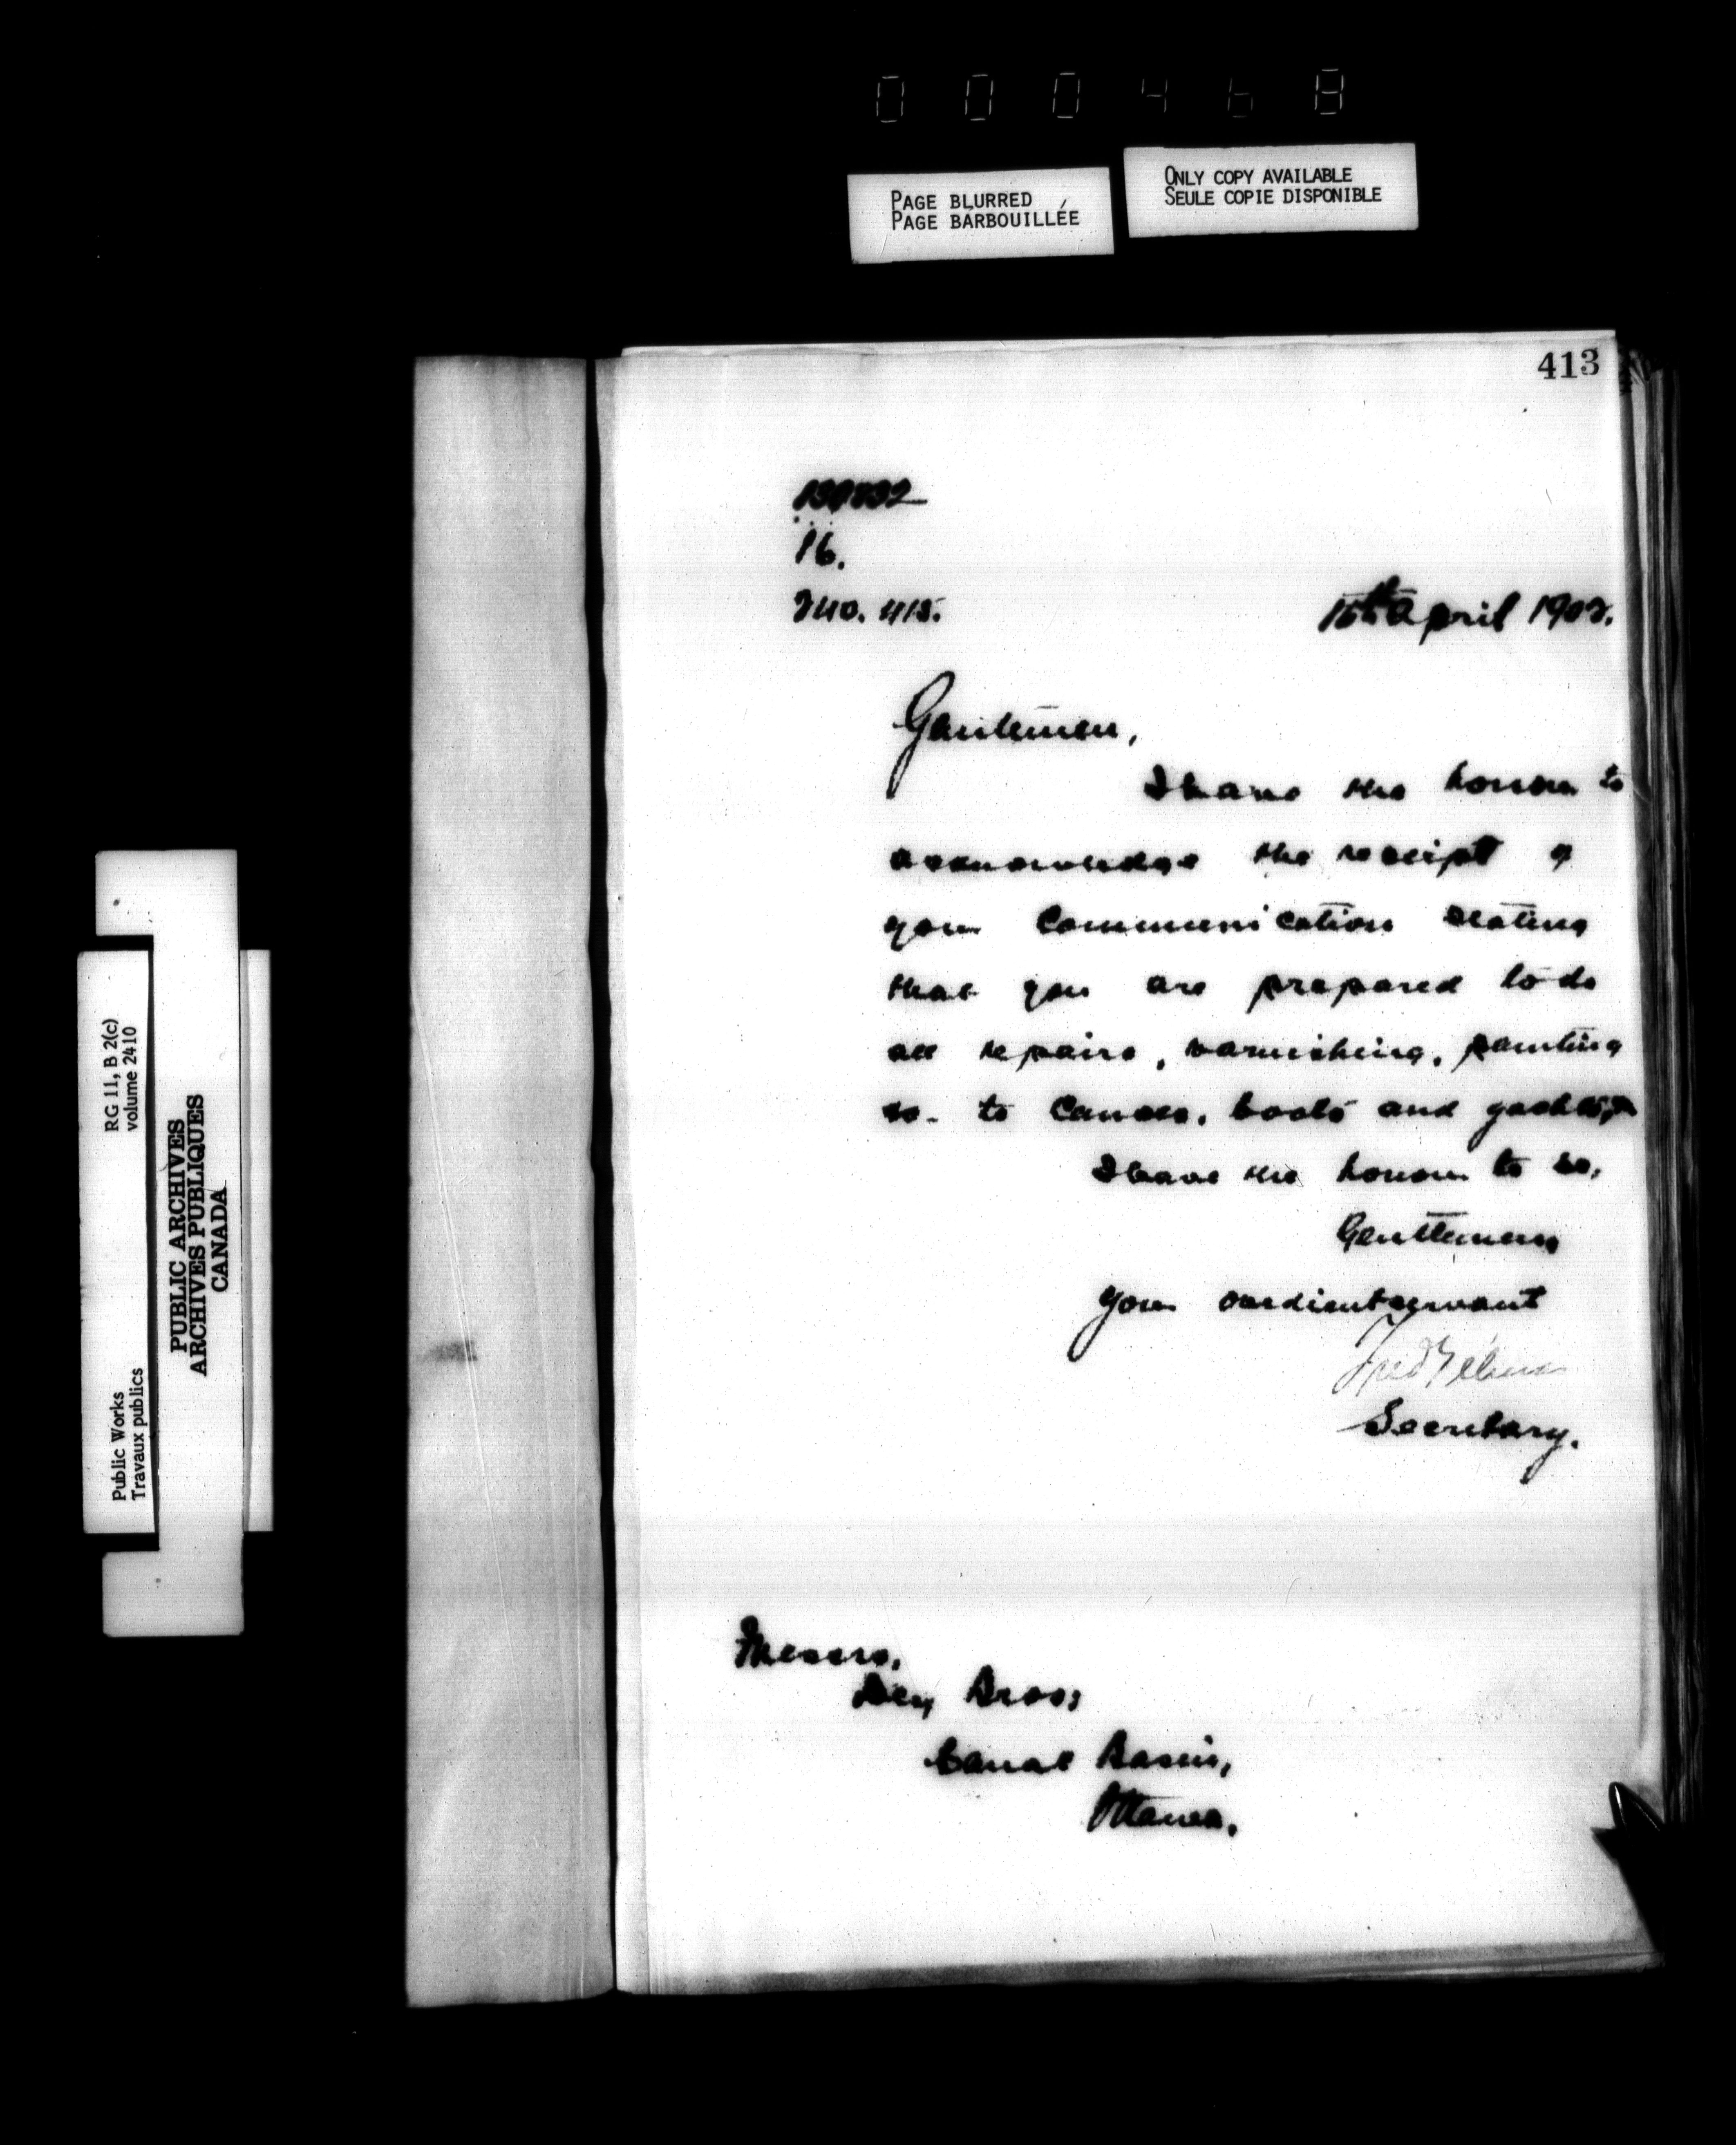 000468
PAGE BLURRED
PAGE BARBOUILLÉE
ONLY COPY AVAILABLE
SEULE COPIE DISPONIBLE
413
16.
15th April 1902.
Gentlemen,
I have the honour to
acknowledge the receipt of
your communication stating
that you are prepared to do
all repairs, varnishing, painting
to canoes, boats and
I have the honour to be,
Gentlemen
Your obedient servant
Secretary.
Messrs.
Dey Bros;
Canal Basin,
Ottawa.
RG 11, B 2(c)
volume 2410
Public Works
Travaux publics
PUBLIC ARCHIVES
ARCHIVES PUBLIQUES
CANADA